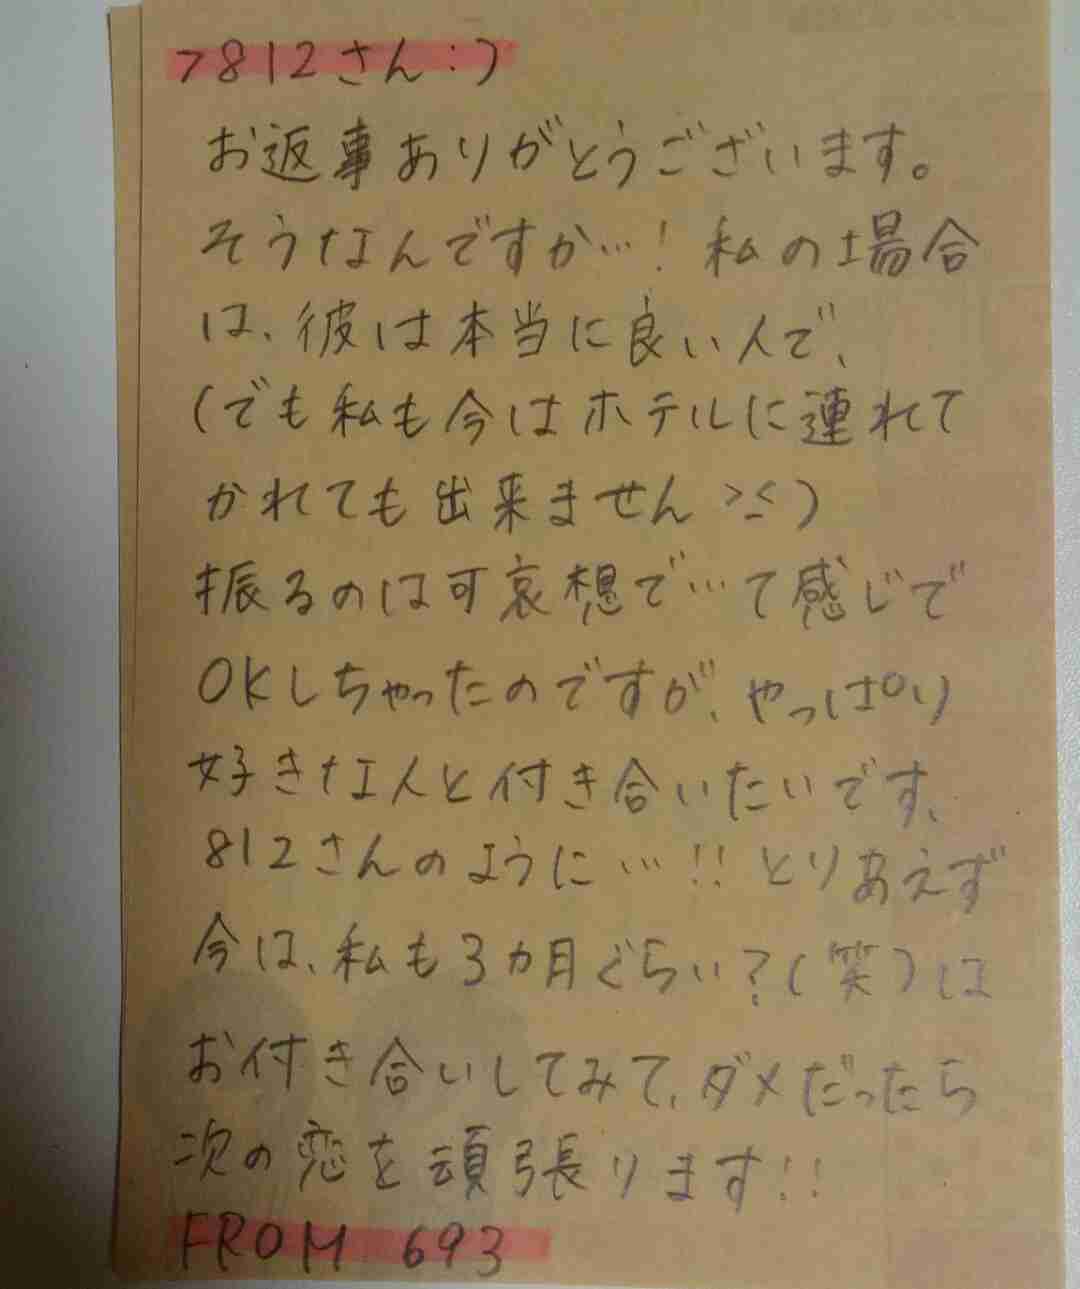 >812さん:)
お返事ありがとうございます。
そうなんですか…!私の場合
は、彼は本当に良い人で、
(でも私も今はホテルに連れて
かれても出来ません >_<)
振るのは可哀想で…て感じで
OKしちゃったのですが、やっぱり
好きな人と付き合いたいです、
812さんのように…!!とりあえず
今は、私も3カ月ぐらい?(笑)は
お付き合いしてみて、ダメだったら
次の恋を頑張ります!!
FROM 693